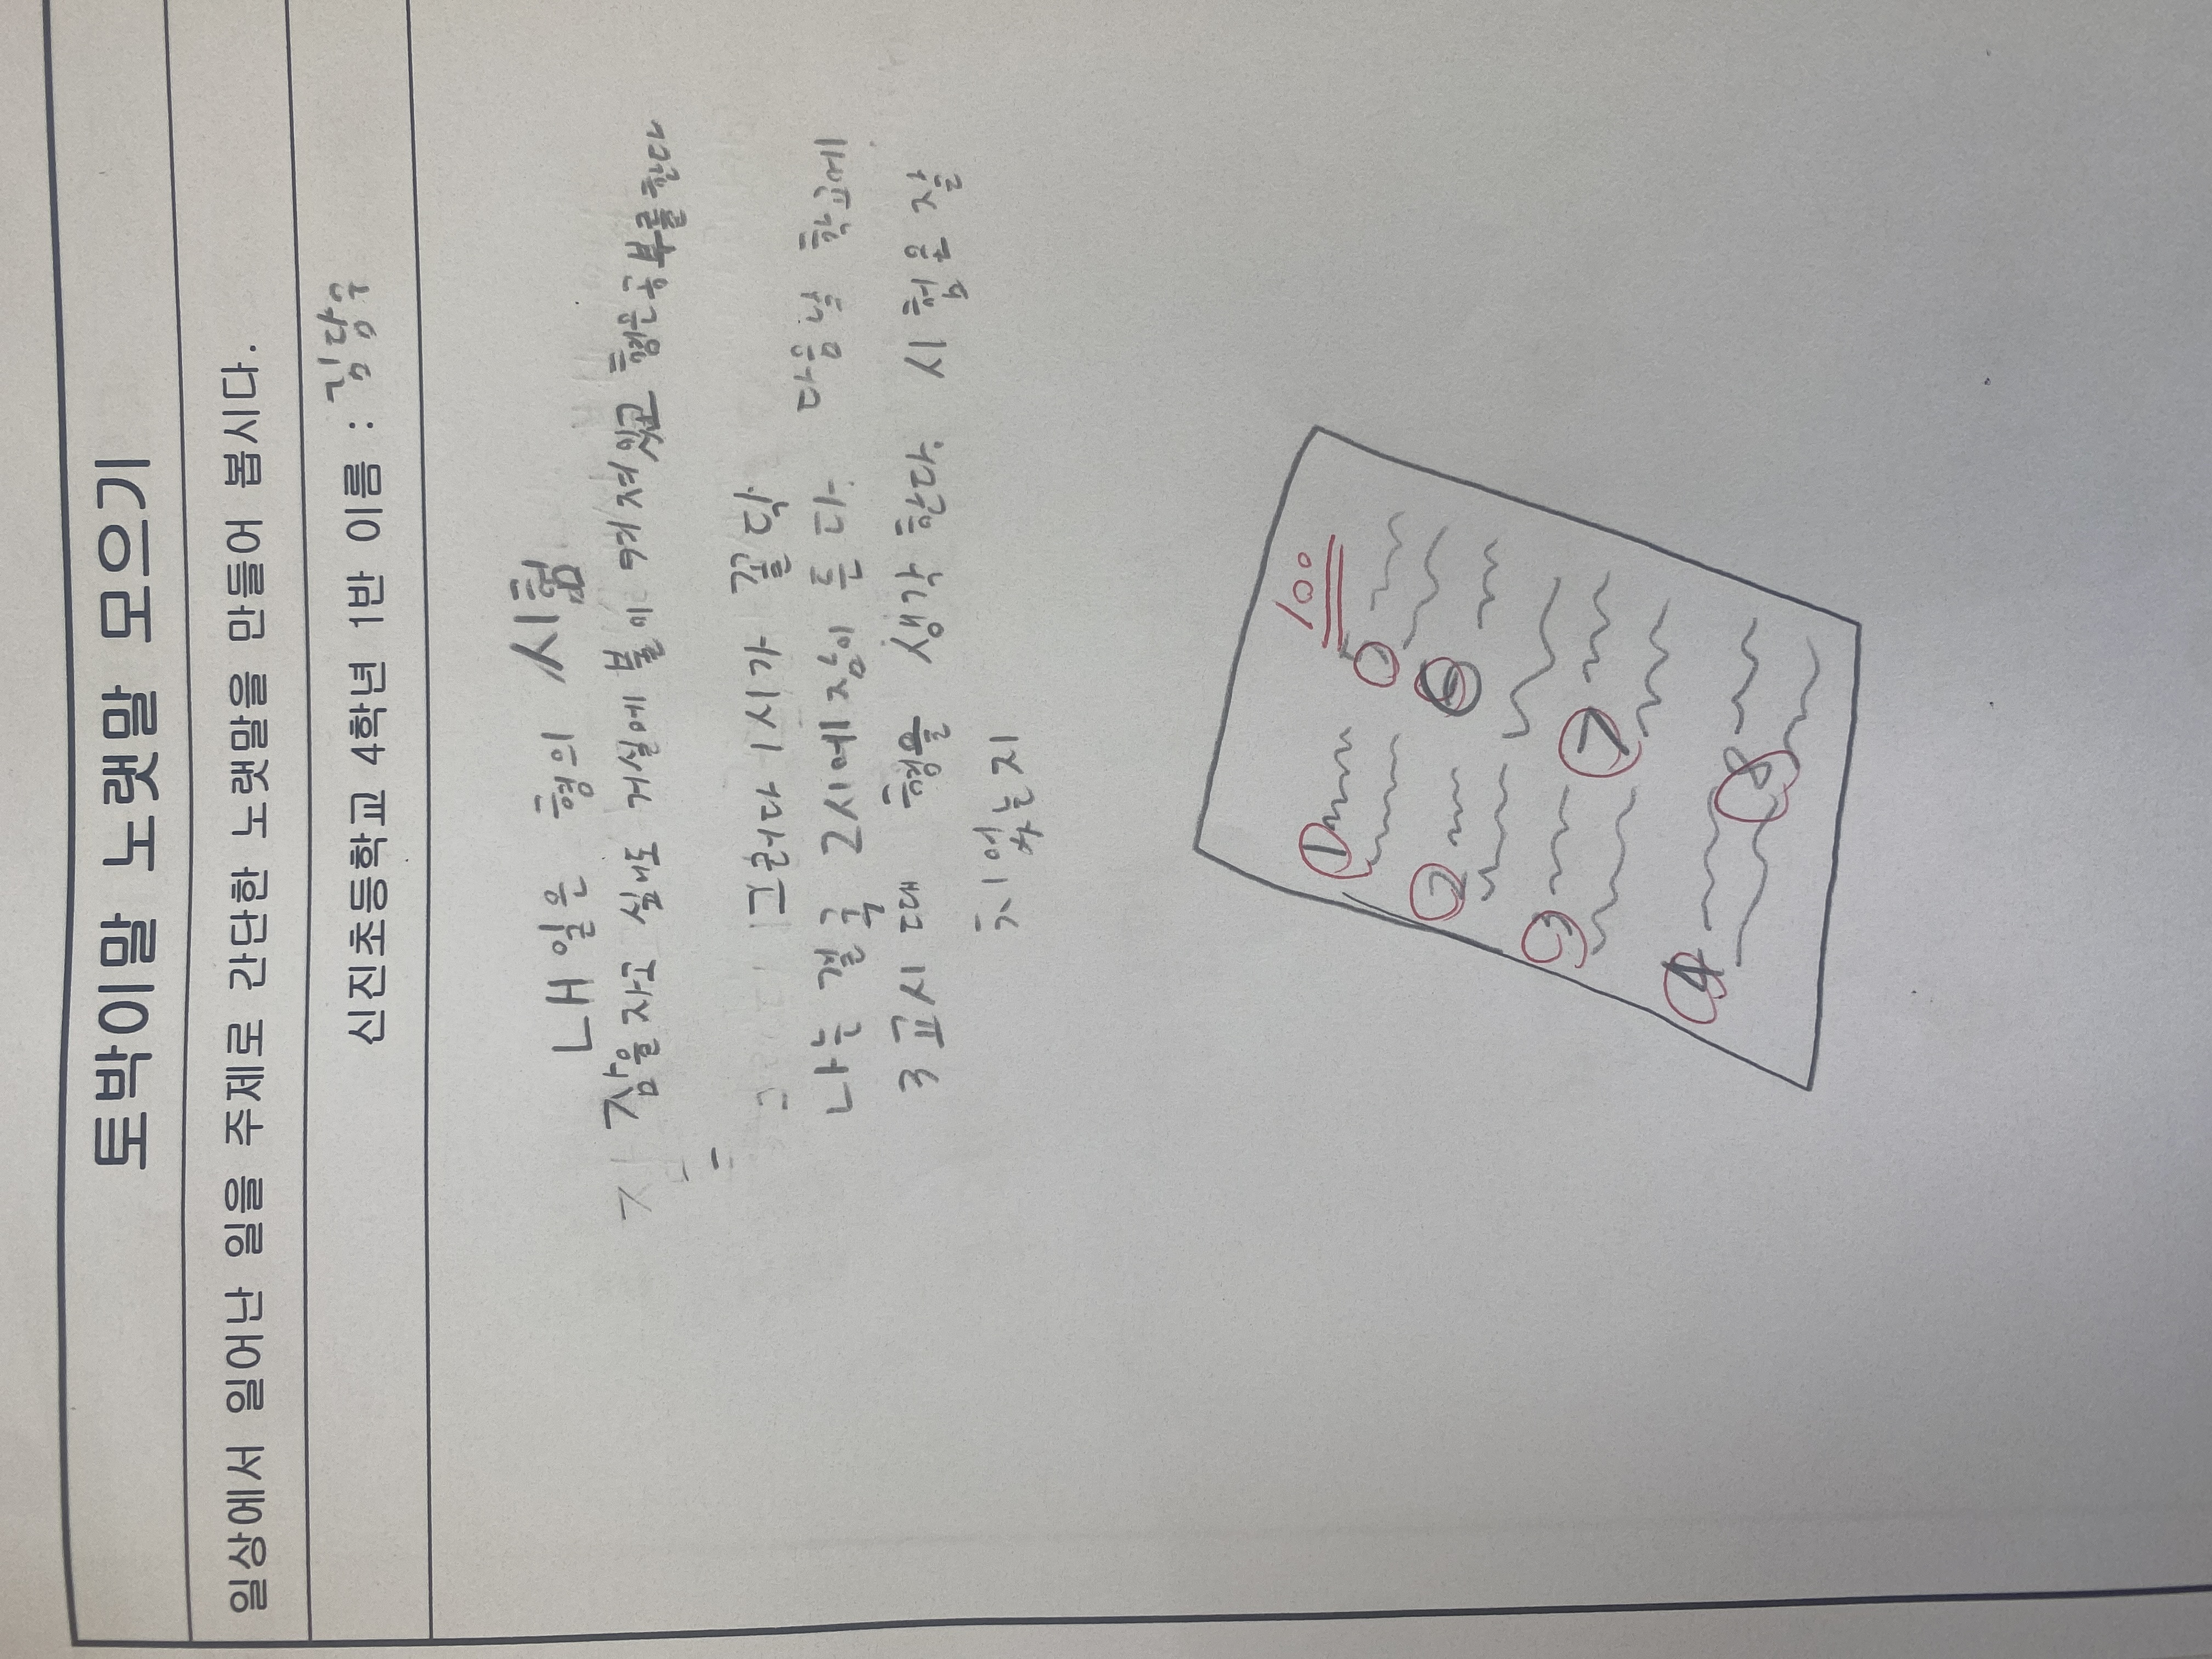 토박이말 노랫말 모으기
일상에서 일어난 일을 주제로 간단한 노랫말을 만들어 봅시다.
신진초등학교 4학년 1반 이름 : 김당유
내일은 형의 시험
잠을자고 싶어도 거실에 불이 켜져있고 형은공부를한다
그러다 1시가 꼴딱
나는 결국 2시에 잠이 든다. 다음날 학교에
3교시 때 형을 생각 한다. 시험은 잘
치었는지
100
① ②
③ ④
⑥ ⑦ 8